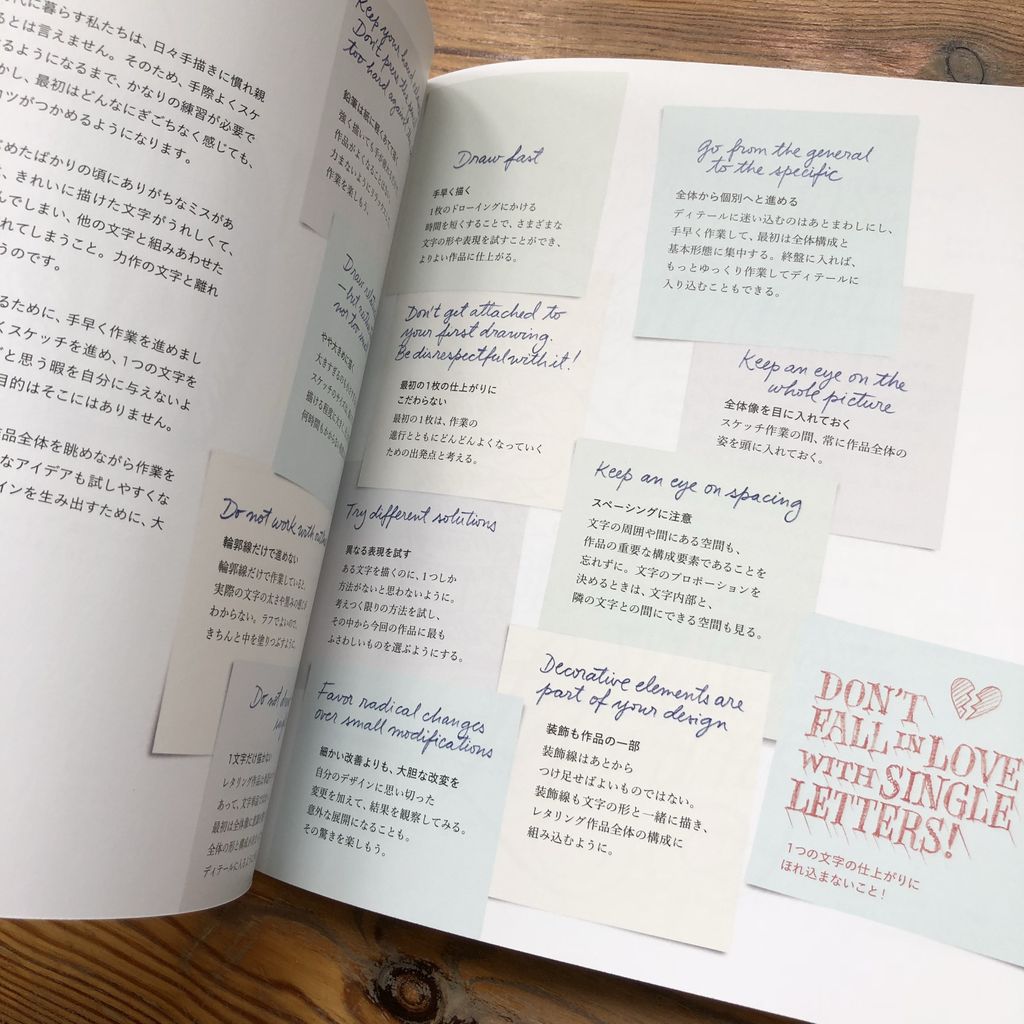 代に暮らす私たちは、日々手描きに慣れ親
るとは言えません。そのため、手際よくスケ
るようになるまで、かなりの練習が必要で
かし、最初はどんなにぎごちなく感じても、
コツがつかめるようになります。
めたばかりの頃にありがちなミスがあ
、きれいに描けた文字がうれしくて、
んでしまい、他の文字と組みあわせた
れてしまうこと。力作の文字と離れ
うのです。
るために、手早く作業を進めまし
くスケッチを進め、1つの文字を
と思う暇を自分に与えないよ
目的はそこにはありません。
品全体を眺めながら作業を
なアイデアも試しやすくな
インを生み出すために、大
Keep your hand
Don't press
too hard against
鉛筆は紙に軽くあてて
強く描いても
作品がよくなる
力まないように
作業を楽しもう。
Draw
not too
やや大きめに描く
大きすぎる
スケッチの
描ける程度に
何時間もかから
Do not work with
輪郭線だけで進めない
輪郭線だけで作業していると、
実際の文字の太さや黒みの
わからない。ラフでよいので、
きちんと中を塗りつぶすように
Do not
1文字だけ描かない
レタリング作品は
あって、文字単品では
最初は全体像に
全体の形と構成
ディテールに入るように
Draw fast
手早く描く
1枚のドローイングにかける
時間を短くすることで、さまざまな
文字の形や表現を試すことができ、
よりよい作品に仕上がる。
Don't get attached to
your first drawing.
Be disrespectful with it!
最初の1枚の仕上がりに
こだわらない
最初の1枚は、作業の
進行とともにどんどんよくなっていく
ための出発点と考える。
Try different solutions
異なる表現を試す
ある文字を描くのに、1つしか
方法がないと思わないように。
考えつく限りの方法を試し、
その中から今回の作品に最も
ふさわしいものを選ぶようにする。
Favor radical changes
over small modifications
細かい改善よりも、大胆な改変を
自分のデザインに思い切った
変更を加えて、結果を観察してみる。
意外な展開になることも。
その驚きを楽しもう。
Go from the general
to the specific
全体から個別へと進める
ディテールに迷い込むのはあとまわしにし、
手早く作業して、最初は全体構成と
基本形態に集中する。終盤に入れば、
もっとゆっくり作業してディテールに
入り込むこともできる。
Keep an eye on the
whole picture
全体像を目に入れておく
スケッチ作業の間、常に作品全体の
姿を頭に入れておく。
Keep an eye on spacing
スペーシングに注意
文字の周囲や間にある空間も、
作品の重要な構成要素であることを
忘れずに。文字のプロポーションを
決めるときは、文字内部と、
隣の文字との間にできる空間も見る。
Decorative elements are
part of your design
装飾も作品の一部
装飾線はあとから
つけ足せばよいものではない。
装飾線も文字の形と一緒に描き、
レタリング作品全体の構成に
組み込むように。
DON'T
FALL IN LOVE
WITH SINGLE
LETTERS!
1つの文字の仕上がりに
ほれ込まないこと!